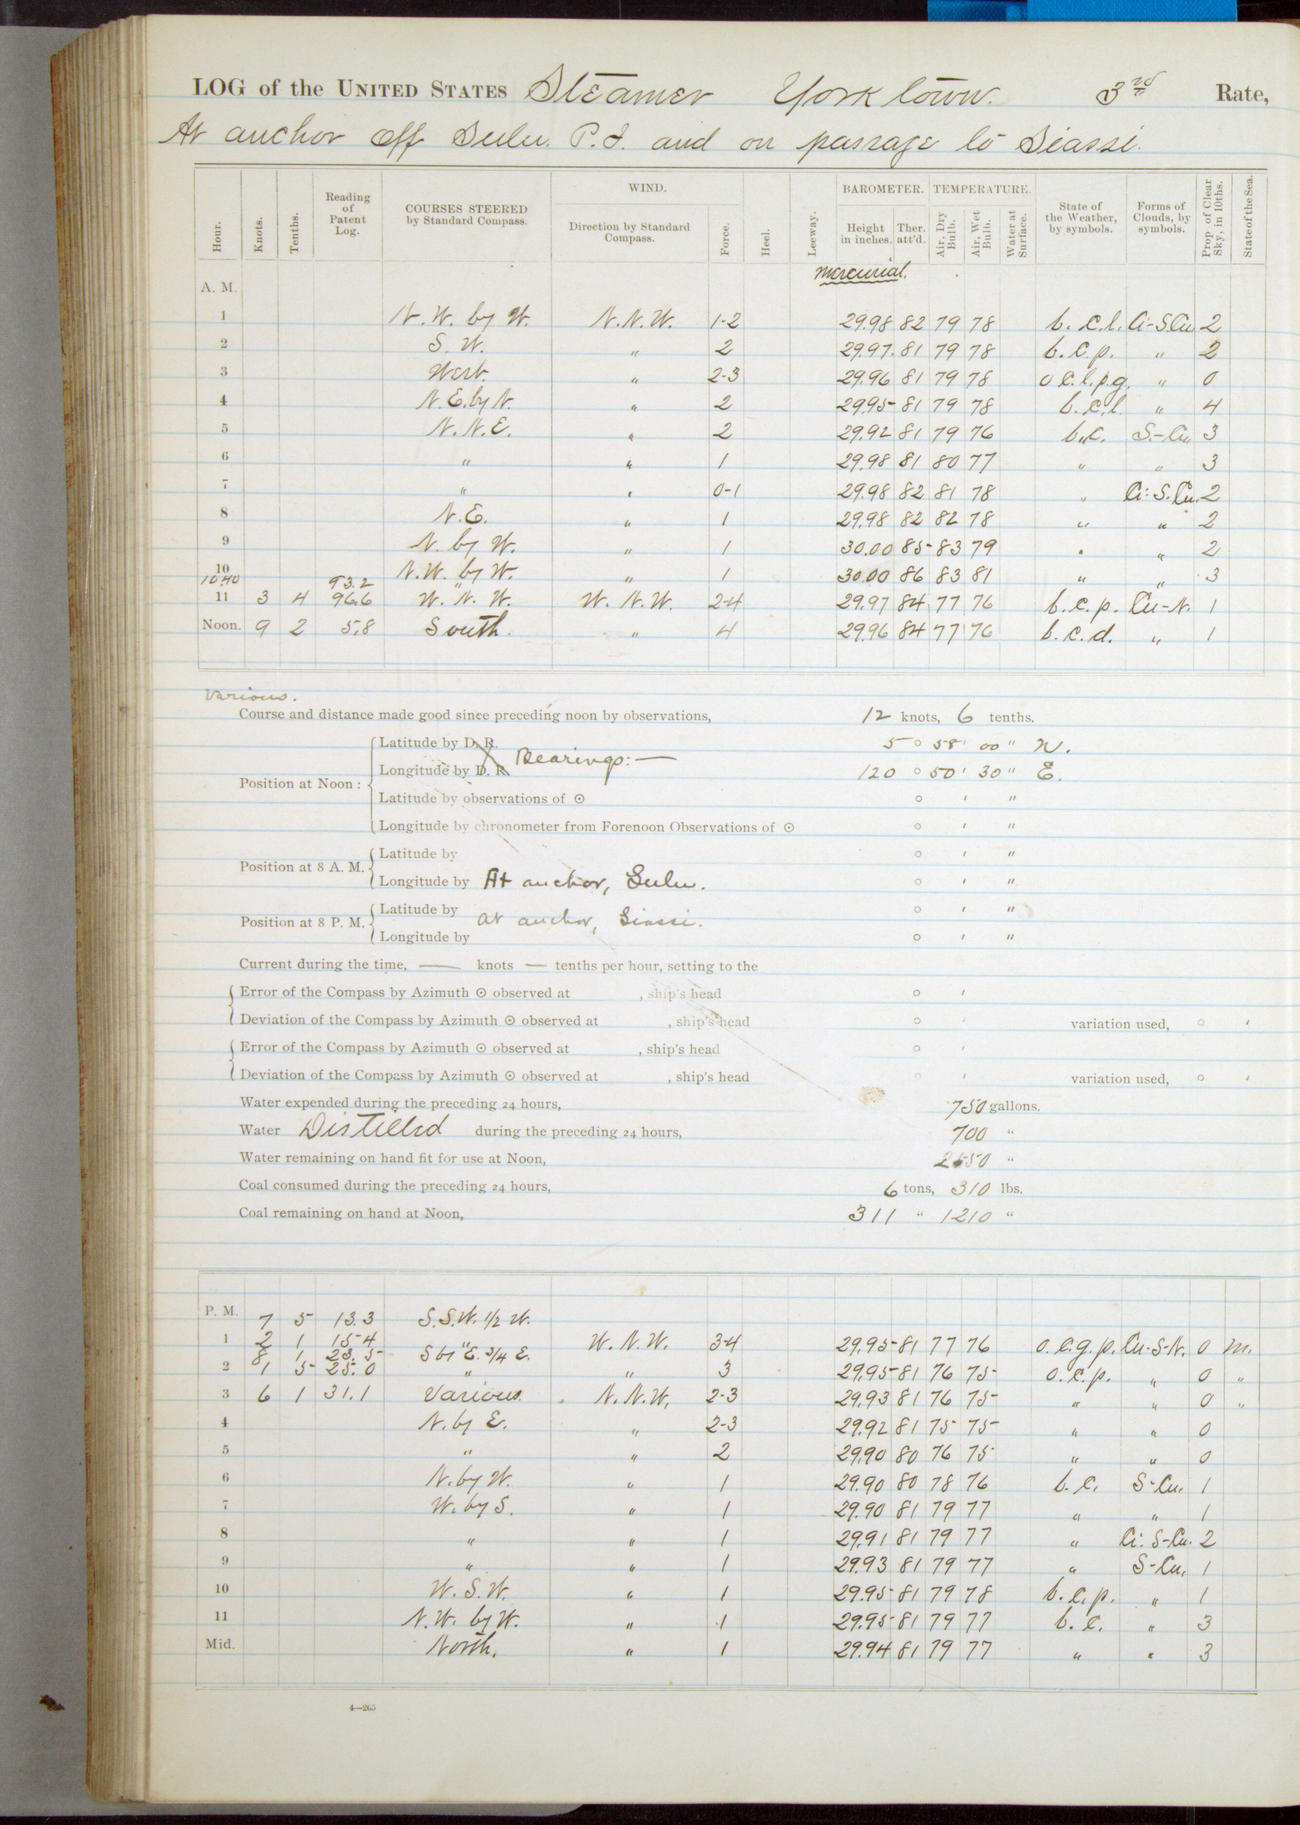 LOG of the UNITED STATES Steamer Yorktown. 3rd Rate,
At anchor off Sulu. P.I. and on passage to Siassi.
Hour. Knots. Tenths. Reading of Patent Log. COURSES STEERED by Standard Compass. WIND. Direction by Standard Compass. Force. Heel. Leeway. BAROMETER. Height in inches. Ther. att'd. TEMPERATURE. Air, Dry Bulb. Air, Wet Bulb. Water at Surface. State of the Weather, by symbols. Forms of Clouds, by symbols. Prop. of Clear Sky, in 10ths. State of the Sea.
mercurial.
A. M.
1 N.W. by W. N.N.W. 1-2 29.98 82 79 78 b.c.l. Ci-S.Cu. 2
2 S.W. " 2 29.97 81 79 78 b.c.p. " 2
3 West. " 2-3 29.96 81 79 78 o.c.l.p.q. " 0
4 N.E. by N. " 2 29.95 81 79 78 b.c.l. " 4
5 N.N.E. " 2 29.92 81 79 76 b.c. S.-Cu. 3
6 " " 1 29.98 81 80 77 " " 3
7 " " 0-1 29.98 82 81 78 " Ci: S.Cu. 2
8 N.E. " 1 29.98 82 82 78 " " 2
9 N. by W. " 1 30.00 85 83 79 " " 2
10 N.W. by W. " 1 30.00 86 83 81 " " 3
10.40 93.2 "
11 3 4 96.6 W.N.W. W.N.W. 2-4 29.97 84 77 76 b.c.p. Cu-N. 1
Noon. 9 2 5.8 South. " 4 29.96 84 77 76 b.c.d. " 1
Various.
Course and distance made good since preceding noon by observations, 12 knots, 6 tenths.
Position at Noon:
Latitude by D. R. 5 ° 58 ' 00 " N.
Bearings:—
Longitude by D. R. 120 ° 50 ' 30 " E.
Latitude by observations of ⊙ ° ' "
Longitude by chronometer from Forenoon Observations of ⊙ ° ' "
Position at 8 A. M.
Latitude by ° ' "
Longitude by At anchor, Sulu. ° ' "
Position at 8 P. M.
Latitude by at anchor, Siassi. ° ' "
Longitude by ° ' "
Current during the time, — knots — tenths per hour, setting to the
Error of the Compass by Azimuth ⊙ observed at , ship's head ° '
Deviation of the Compass by Azimuth ⊙ observed at , ship's head ° ' variation used, ° '
Error of the Compass by Azimuth ⊙ observed at , ship's head ° '
Deviation of the Compass by Azimuth ⊙ observed at , ship's head ° ' variation used, ° '
Water expended during the preceding 24 hours, 750 gallons.
Water Distilled during the preceding 24 hours, 700 "
Water remaining on hand fit for use at Noon, "
Coal consumed during the preceding 24 hours, 6 tons, 310 lbs.
Coal remaining on hand at Noon, 311 " 1210 "
P. M. 7 5 13.3 S.S.W. 1/2 W.
1 2 1 15.4 " W.N.W. 3-4 29.95 81 77 76 o.c.g.p. Cu-S-N. 0 m.
8 1 23.5 S by E. 3/4 E.
2 1 5 25.0 " " 3 29.95 81 76 75 o.c.p. " 0 "
3 6 1 31.1 Various. N.N.W. 2-3 29.93 81 76 75 " " 0 "
4 N. by E. " 2-3 29.92 81 75 75 " " 0
5 " " 2 29.90 80 76 75 " " 0
6 N. by W. " 1 29.90 80 78 76 b.c. S-Cu. 1
7 W. by S. " 1 29.90 81 79 77 " " 1
8 " " 1 29.91 81 79 77 " Ci: S-Cu. 2
9 " " 1 29.93 81 79 77 " S-Cu. 1
10 W.S.W. " 1 29.95 81 79 78 b.c.p. " 1
11 N.W. by W. " 1 29.95 81 79 77 b.c. " 3
Mid. North. " 1 29.94 81 79 77 " " 3
4—265